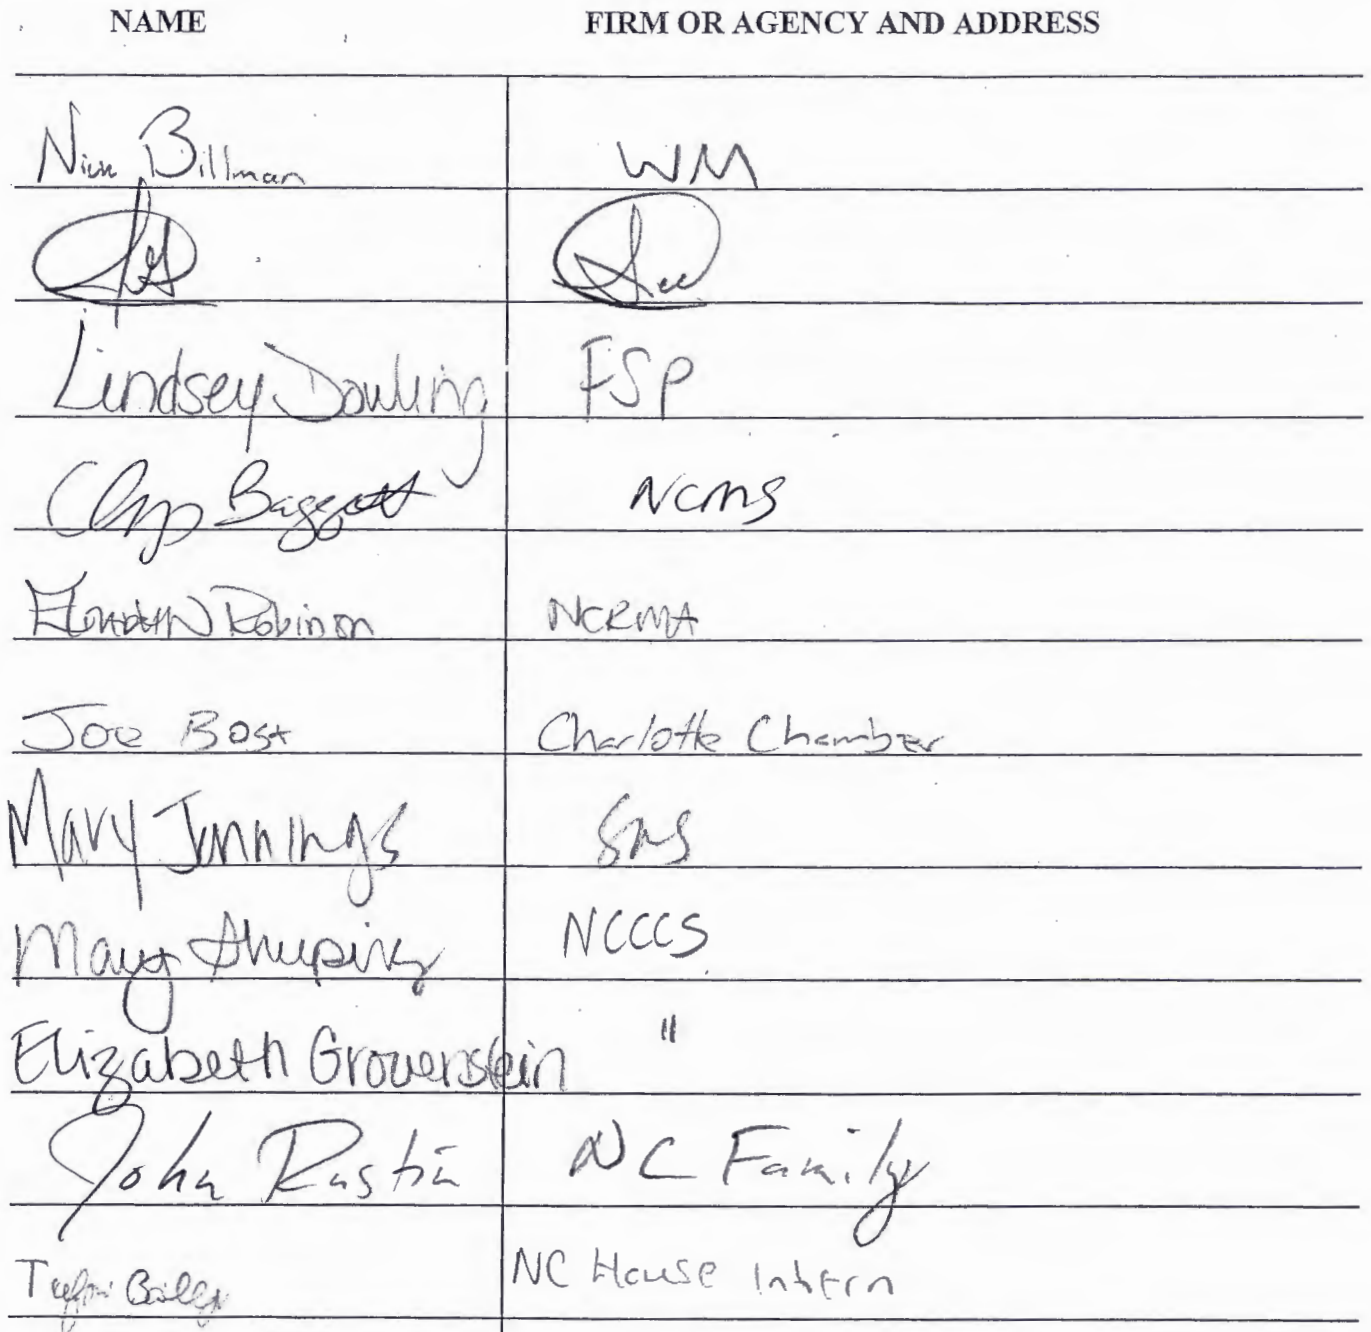 NAME FIRM OR AGENCY AND ADDRESS
Nick Billman WM
Lindsey Dowling FSP
Chip Baggett NCMS
Elizabeth Robinson NCRMA
Joe Bost Charlotte Chamber
Mary Jennings SMS
Mary Shuping NCCCS
Elizabeth Grovenstein "
John Rustin NC Family
Bailey NC House Intern